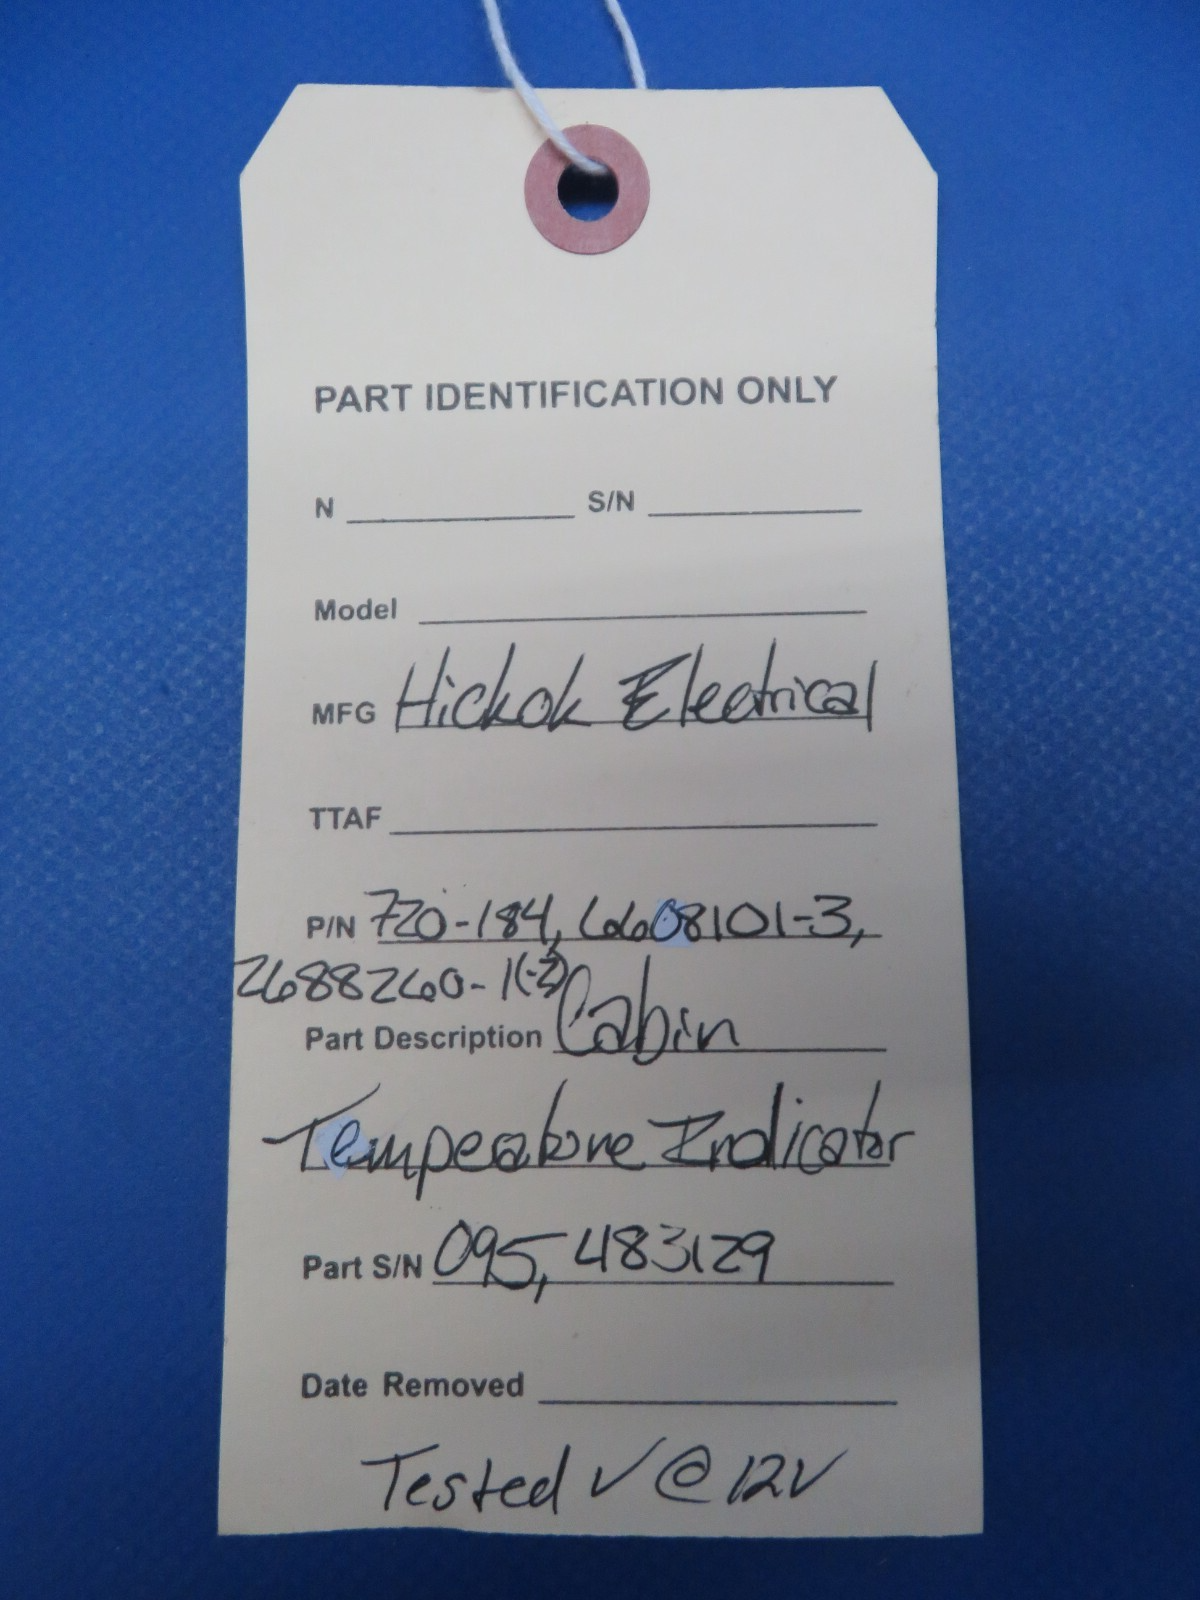 PART IDENTIFICATION ONLY
N S/N
Model
MFG Hickok Electrical
TTAF
P/N 720-184, 6608101-3,
2688260-1(-2)
Part Description Cabin
Temperature Indicator
Part S/N 095, 483129
Date Removed
Tested ✓ @ 12V